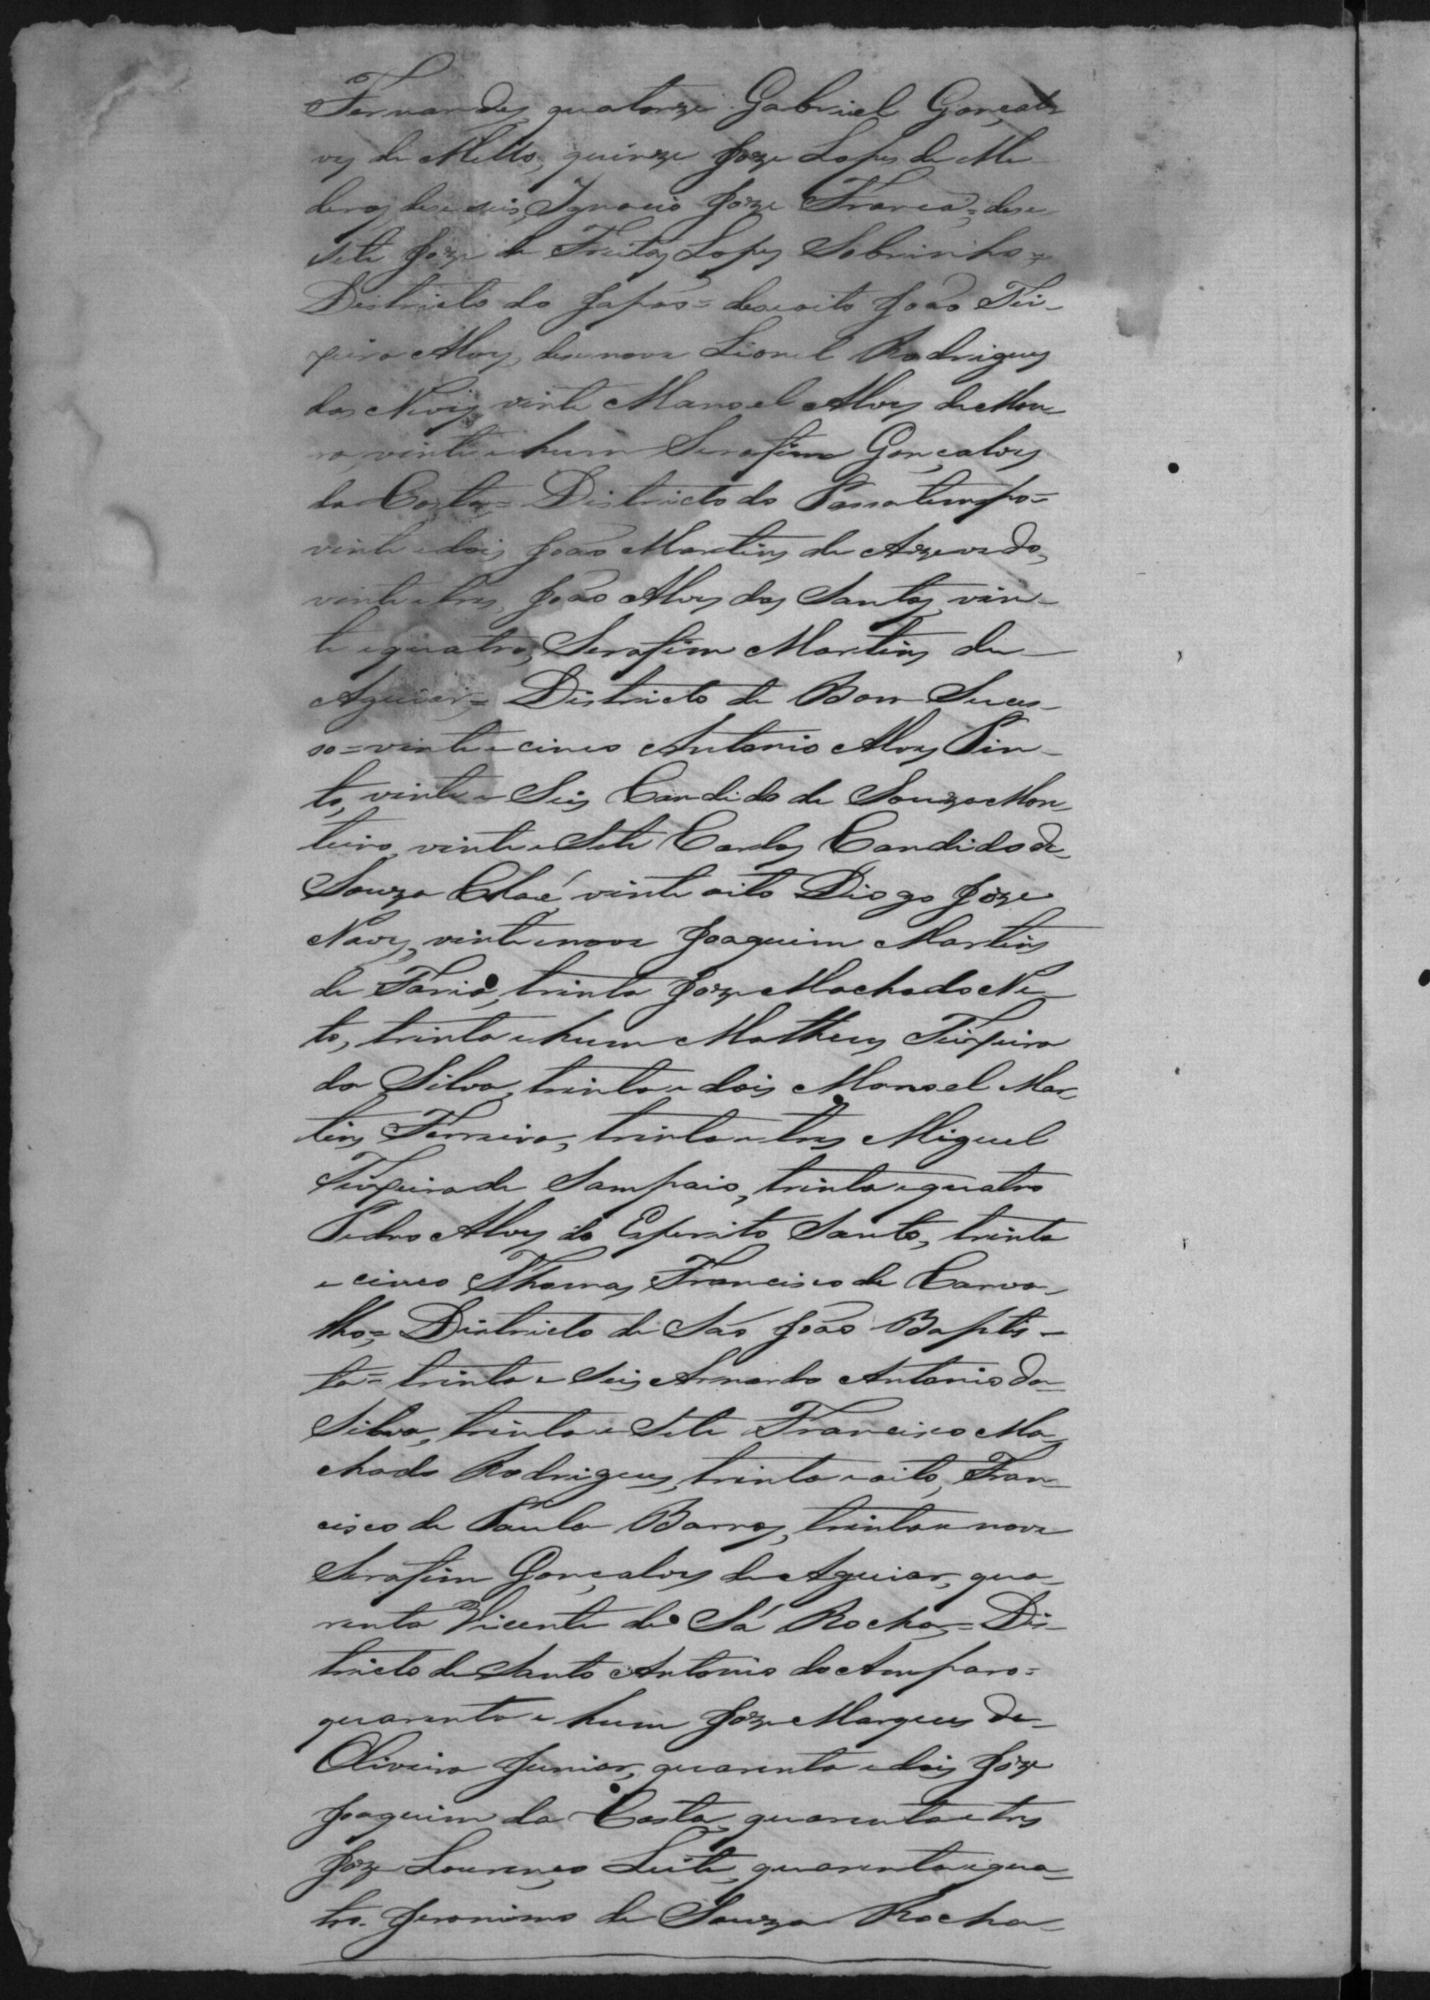 Fernandes, quatorze Gabriel Gonçal-
ves de Mello, quinze Joze Lopes de Me-
deros, deseseis, Ignacio Joze Franca, = dese-
sete Joze de Freitas Lopes Sobrinho =
Districto do Japão = desoito João Tei-
xeira Alves, desenove Lionel Rodrigues
das Neves, vinte Manoel Alves de Mou-
ra, vinte e hum Serafim Gonçalves
da Costa, = Districto do Passatempo =
vinte e dois, João Martins de Azevedo,
vinte e tres, João Alves dos Santos, vin-
te e quatro, Serafim Martins de
Aguiar, = Districto de Bom Suces-
so = vinte e cinco Antonio Alves Pin-
to, vinte e Seis Candido de Souza Mon-
teiro, vinte e Sete Carlos Candido de
Souza vinte oito Diogo Joze
Naves, vinte e nove Joaquim Martins
de Faria, trinta Joze Machado Ne-
to, trinta e hum Matheus Teixeira
da Silva, trinta e dois Manoel Mar-
tins Ferreira, trinta e tres Miguel
Teixeira de Sampaio, trinta e quatro
Pedro Alves do Esperito Santo, trinta
e cinco Thomas Francisco de Carva-
lho, = Districto de São João Baptis-
ta = trinta e Seis Armando Antonio da
Silva, trinta e Sete Francisco Ma-
chado Rodrigues, trinta e oito, Fran-
cisco de Paula Barros, trinta e nove
Serafim Gonçalves de Aguiar, qua-
renta Vicente de Sá Rocha, = Dis-
tricto de Santo Antonio do Amparo =
quarenta e hum Joze Marques de
Oliveira Junior, quarenta e dois Joze
Joaquim da Costa, quarenta e tres
Joze Lourenço Leite, quarenta e qua-
tro. Jeronimo de Souza Rocha